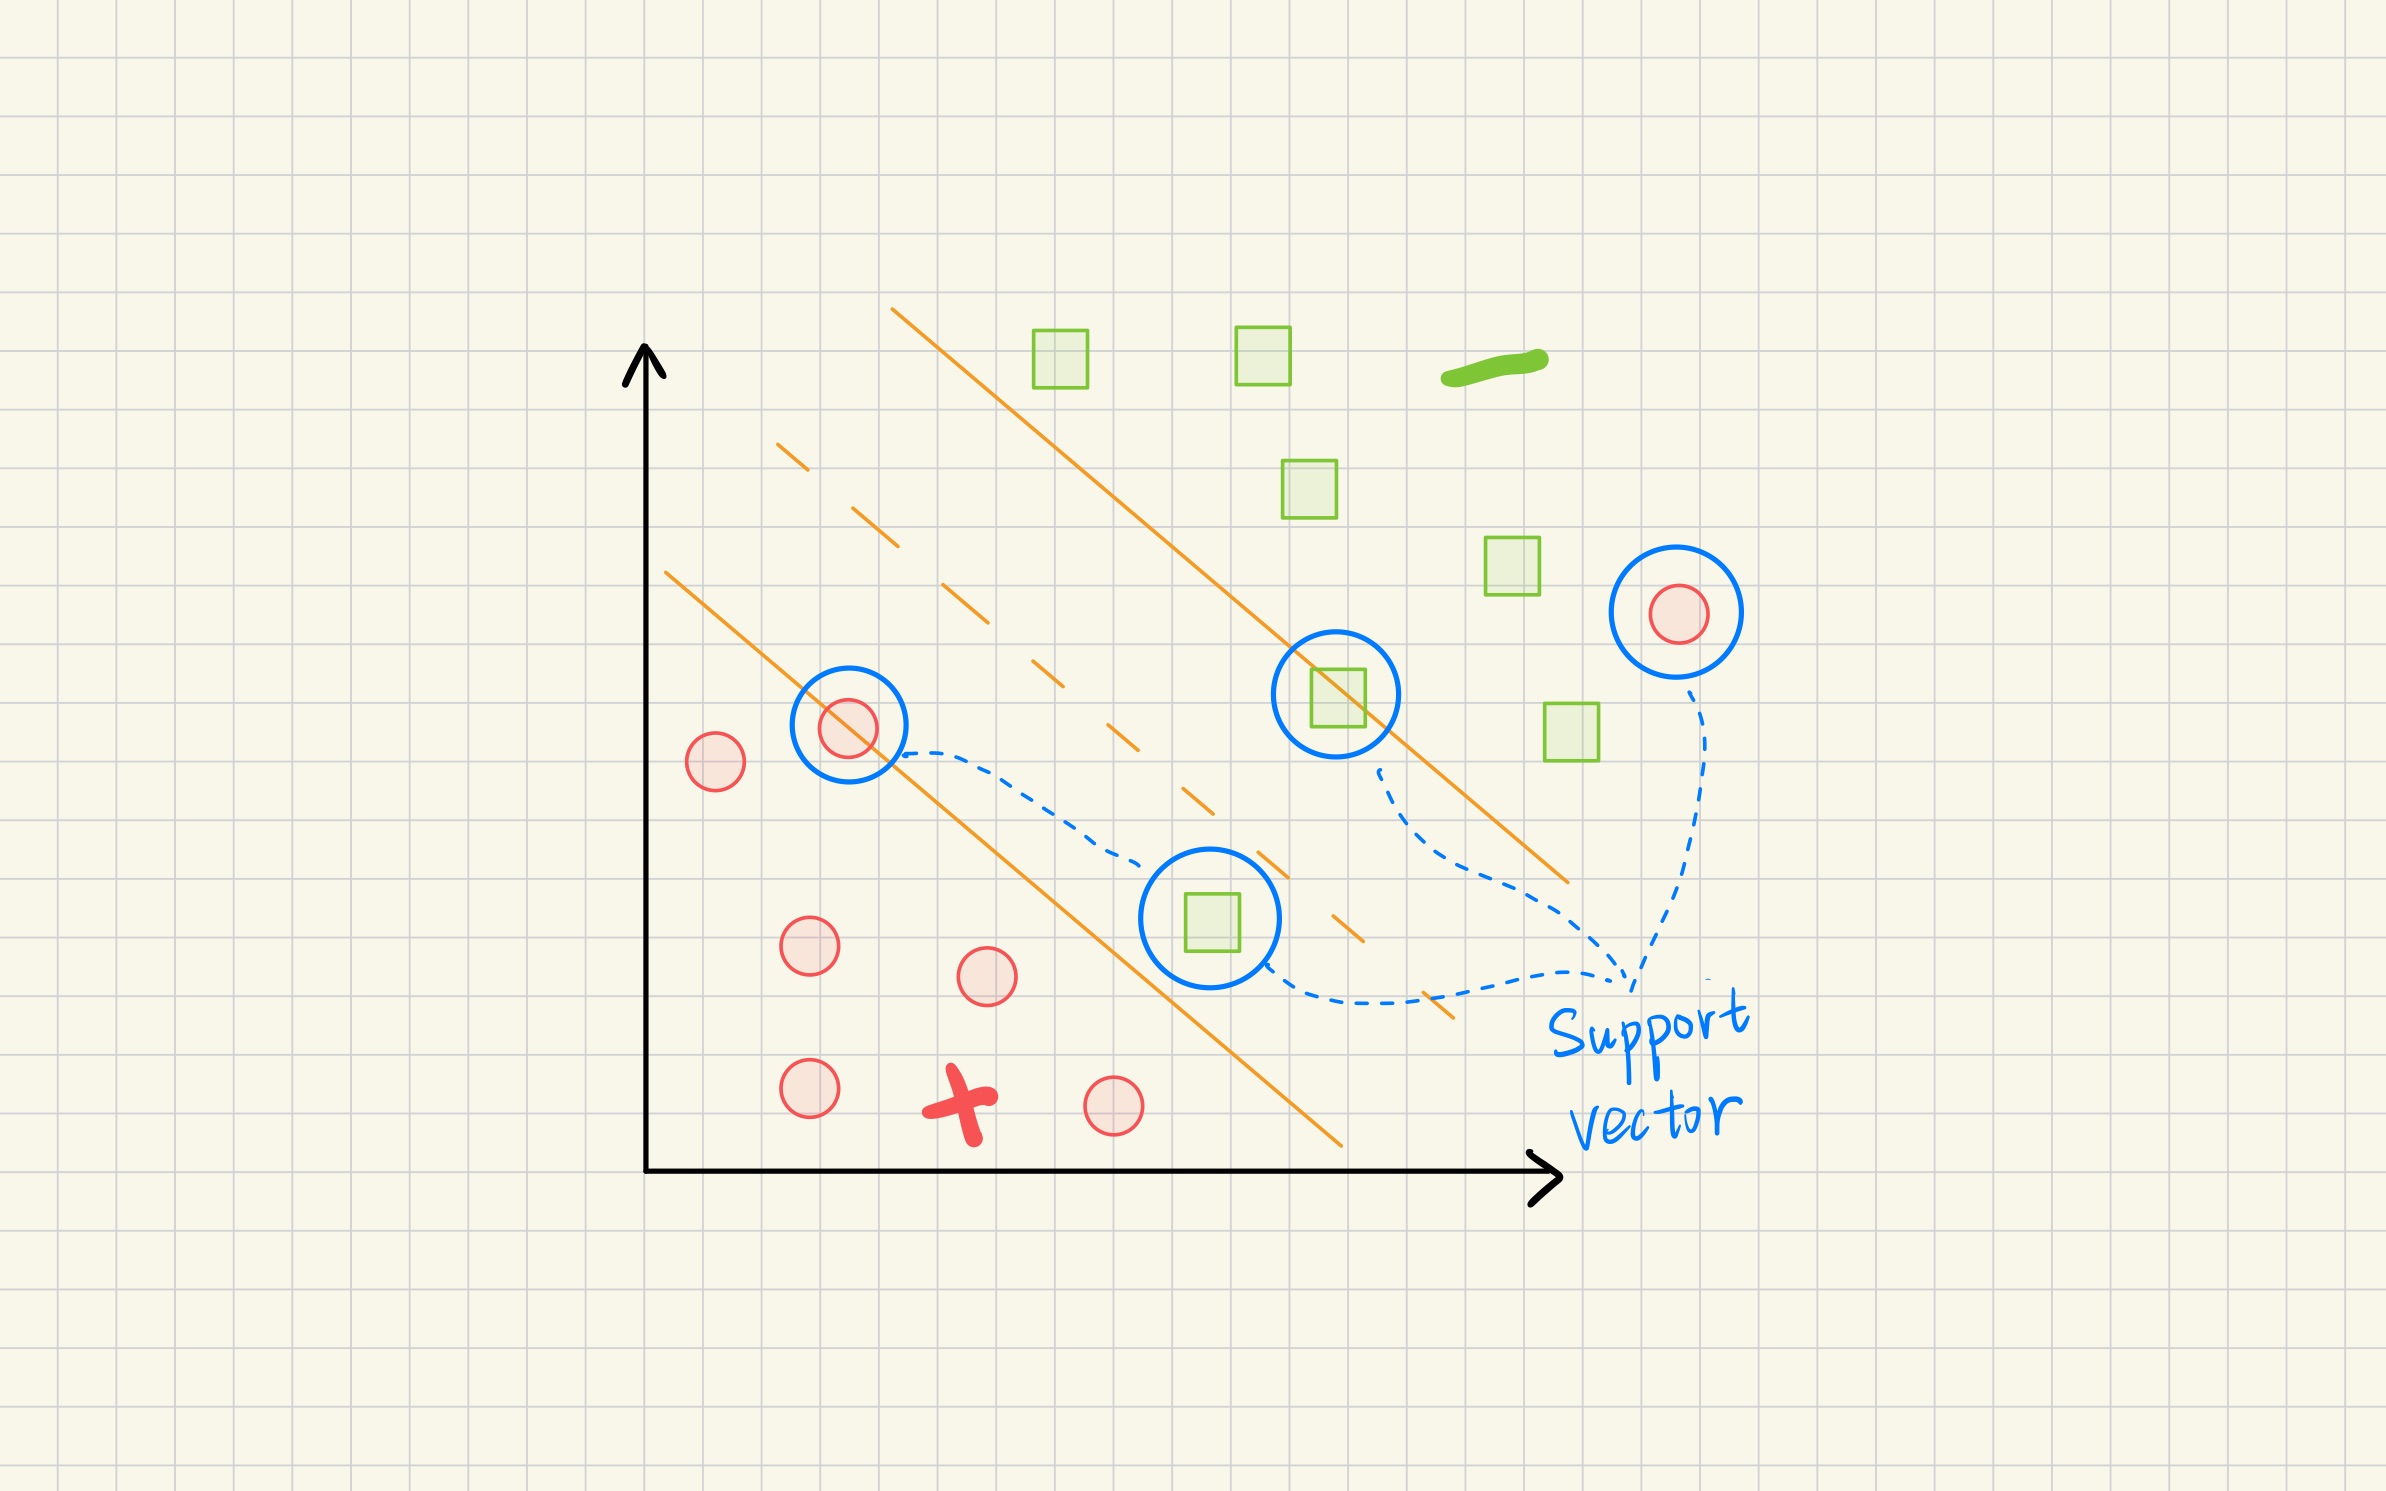 Support
vector